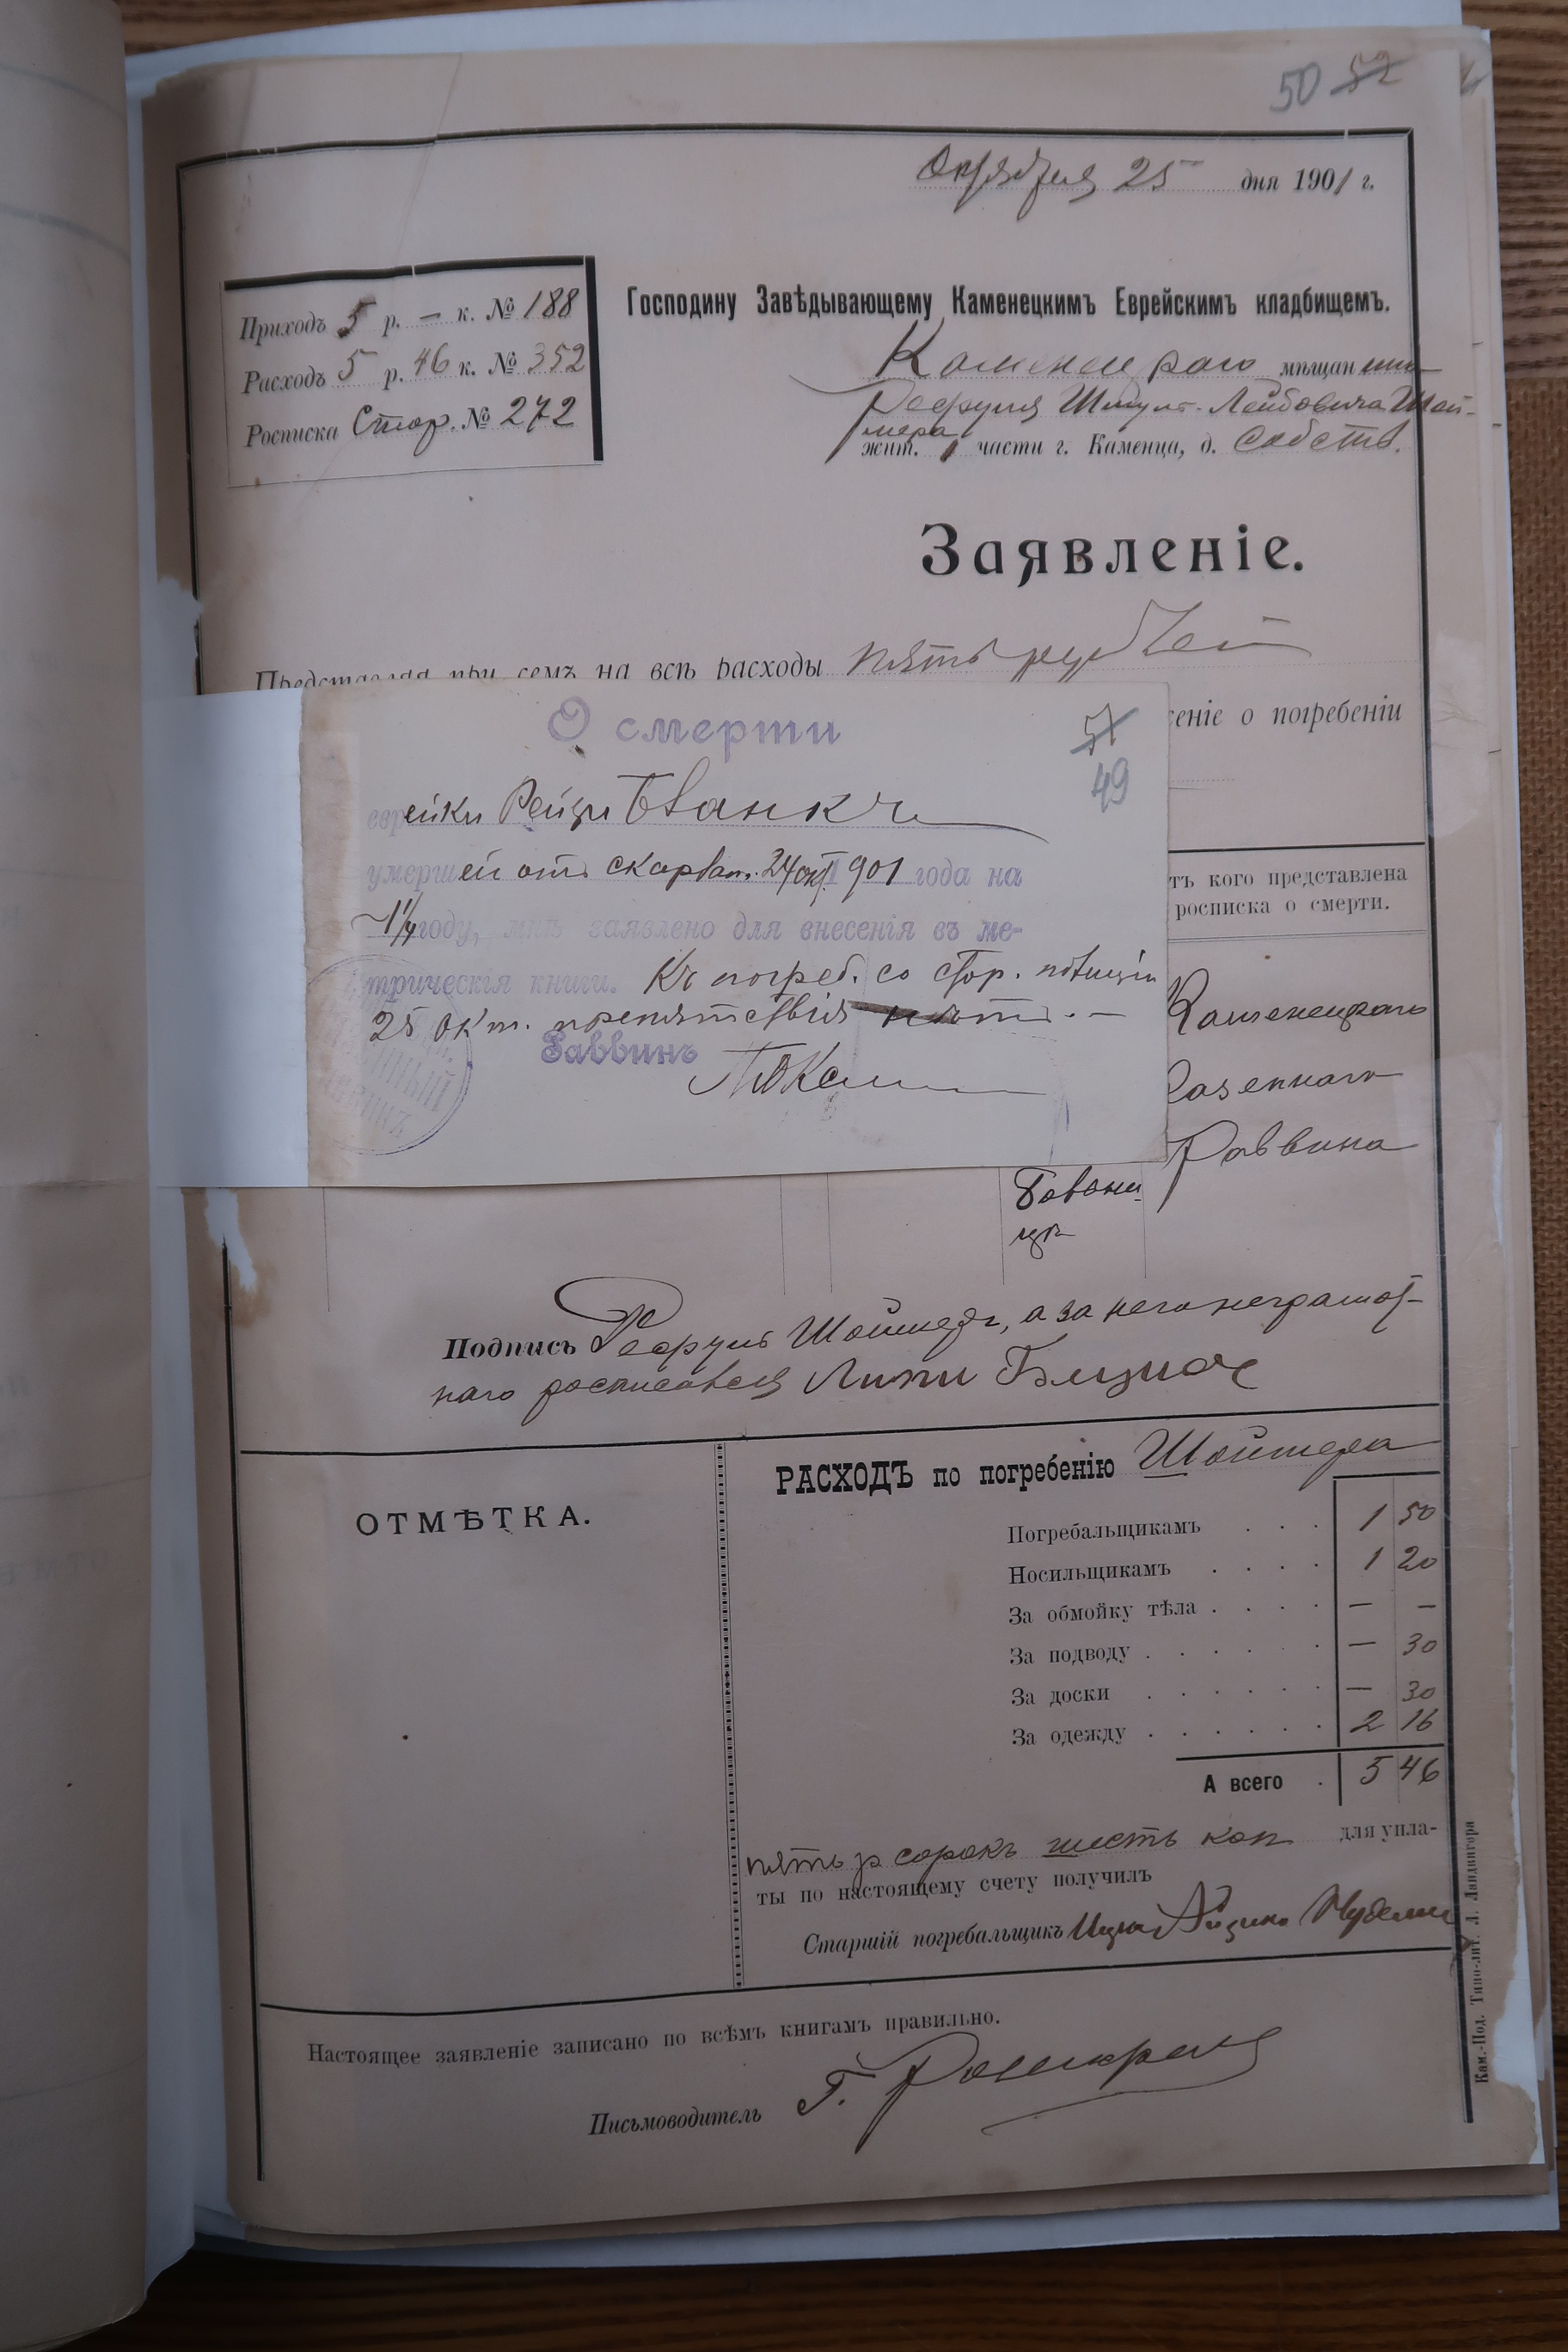 50 52
Октября 25 дня 1901 г.
Приходъ 5 р. — к. № 188
Расходъ 5 р. 46 к. № 352
Росписка Стор. № 272
Господину Завѣдывающему Каменецкимъ Еврейскимъ кладбищемъ.
Каменецкаго мѣщанина
Лейбовича Шой-
мера
жит. 1 части г. Каменца, д. Собств.
Заявленіе.
Представляя при семъ на всѣ расходы пять рублей
еніе о погребеніи
О смерти
51
49
еврейки Рейзи
умершей отъ скарлат. 24 окт. 1901 года на
1 1/4 году, мнѣ заявлено для внесенія въ ме-
трическія книги. Къ погреб. со стор. полиціи
25 окт. препятствія нѣтъ. —
Раввинъ
тъ кого представлена
росписка о смерти.
Каменецкаго
Казеннаго
Раввина
Подпись Шоймеръ, а за него неграмот-
наго росписался
ОТМѢТКА.
РАСХОДЪ по погребенію Шоймера
Погребальщикамъ . . . 1 50
Носильщикамъ . . . . 1 20
За обмойку тѣла . . . . — —
За подводу . . . . . . — 30
За доски . . . . . . — 30
За одежду . . . . . . 2 16
А всего . 5 46
пять р сорокъ шесть коп для упла-
ты по настоящему счету получилъ
Старшій погребальщикъ
Настоящее заявленіе записано по всѣмъ книгамъ правильно.
Письмоводитель Г.
Кам.-Под. Типо-лит. Л. Ландвигера